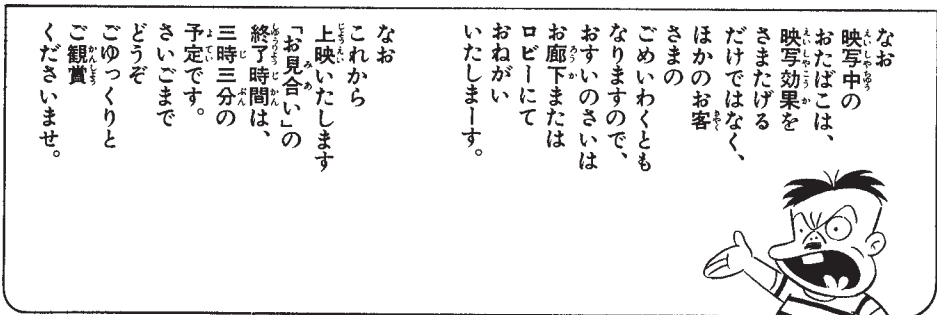 なお
映写中の
おたばこは、
映写効果を
さまたげる
だけではなく、
ほかのお客
さまの
ごめいわくとも
なりますので、
おすいのさいは
お廊下または
ロビーにて
おねがい
いたしまーす。
なお
これから
上映いたします
「お見合い」の
終了時間は、
三時三分の
予定です。
さいごまで
どうぞ
ごゆっくりと
ご観賞
くださいませ。